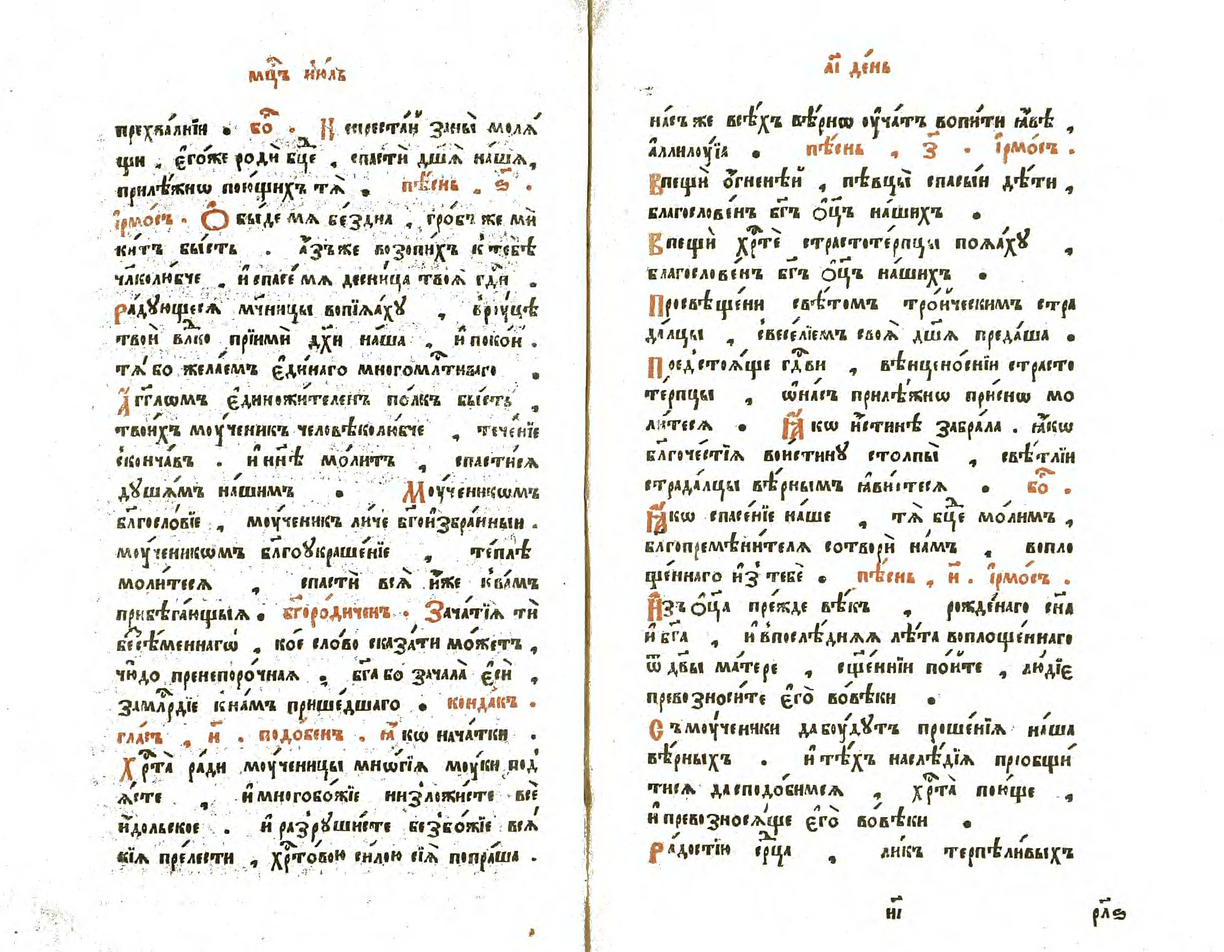 мц҃ъ і҆ю́ль
прехва́лнїи . бо҃ . Н есреста́й заны̀ моля́
щи , є҆го́же родѝ бц҃е , спастѝ дш҃а на́ша ,
прилѣ́жнѡ пою́щихъ тѧ̀ . пѣ́снь . ѕ҃ .
і҆рмо́съ . Ѻ бы́де мѧ бе́здна , гро́бъ же мѝ
ки́тъ бы́сть . а҆́зъже возопи́хъ к тебѣ̀
чл҃колю́бче , и҆ спасе́ мѧ десни́ца твоѧ̀ гдⷭ҇и .
Ра́дующесѧ мч҃ницы вопїѧ́ху , вру́цѣ
твоѝ влⷣко прїимѝ дх҃и на́ша , и҆ поко́и .
тѧ́ бо жела́емъ є҆ди́наго многомлⷭ҇тиваго .
А҆́ гг҃лѡмъ є҆диножи́теленъ по́лкъ бы́сть ,
твои́хъ моу́ченикъ человѣколю́бче , тече́нїе
сконча́въ . и҆ нн҃ѣ мо́литъ , спасти́сѧ
душа́мъ на́шимъ . Моу́ченикѡмъ
бл҃гослове́ , моу́ченикъ ли́че бг҃оизбра́нныи .
моу́ченикѡмъ бл҃гоукраше́нїе , те́плѣ
моли́тесѧ , спастѝ всѧ̀ и҆̀же к ва́мъ
прибѣга́ющыѧ . бг҃оро́диченъ . Зача́тїѧ тѝ
безсѣ́меннагѡ , ко́е сло́во сказа́ти мо́жетъ ,
чю́до пренепоро́чная . бг҃а бо зачала̀ є҆сѝ ,
замлⷭ҇рдїе к на́мъ прише́дшаго . конда́къ .
гла́съ , и҃ . подо́бенъ . ꙗ҆́ кѡ нача́тки .
Хрⷭ҇та̀ ра́ди моу́ченицы мнѡ́гїѧ моу́ки под
ѧ́сте , и҆ многобо́жїе низложи́сте всѐ
и҆́дольское . и҆ разруши́сте безбо́жїе всѧ́
кїѧ пре́лести , хрⷭ҇то́вою си́лою сїѧ̀ попра́ша .
а҃і де́нь
на́съ же всѣ́хъ вѣ́рнѡ оу҆ча́тъ вопи́ти ꙗ҆́вѣ ,
а҆ллилоу́їа . пѣ́снь , з҃ . і҆рмо́съ .
В пещѝ ѻ҆́гненѣй , пѣвцы̀ спасы́и дѣ́ти ,
благослове́нъ бг҃ъ ѻ҆ц҃ъ на́шихъ .
В пещѝ хрⷭ҇тѐ страстоте́рпцы поѧ́ху ,
благослове́нъ бг҃ъ ѻ҆ц҃ъ на́шихъ .
Просвѣще́ни свѣ́томъ тро́ическимъ стра
да́лцы , свесе́лїемъ своѧ̀ дш҃а преда́ша .
Предстоѧ́ще гдⷭ҇ви , вѣнцено́снїи страсто
те́рпцы , ѡ҆на́съ прилѣ́жнѡ при́снѡ мо
ли́тесѧ . Ꙗ҆́ кѡ и҆́стинѣ забра́ла . ꙗ҆́кѡ
бл҃гоче́стїѧ вои́стину столпы̀ , свѣ́тлїи
страда́лцы вѣ́рнымъ ꙗ҆ви́стесѧ . бо҃ .
Ꙗ҆́ кѡ спасе́нїе на́ше , тѧ̀ бц҃е мо́лимъ ,
бл҃гопремѣни́телѧ сотворѝ на́мъ , вопло
ще́ннаго и҆з̾ тебѐ . пѣ́снь , и҃ . і҆рмо́съ .
И҆зъ ѻ҆ц҃а пре́жде вѣ́къ , рожде́наго сн҃а
и҆ бг҃а , и҆ впослѣ́днѧѧ лѣ́та воплоще́ннаго
ѿ дв҃ы ма́тере , сщ҃е́ннїи по́йте , лю́дїе
превозноси́те є҆го̀ вовѣ́ки .
С ъмоу́ченики да боу́дутъ проше́нїѧ на́ша
вѣ́рныхъ . и҆ тѣ́хъ наслѣ́дїѧ прїобщи́
тисѧ да сподо́бимсѧ , хрⷭ҇та̀ пою́ще ,
и҆ превозносѧ́ще є҆го̀ вовѣ́ки .
Ра́достїю срⷣца , ли́къ терпѣли́выхъ
и҃і
рл҃ѕ